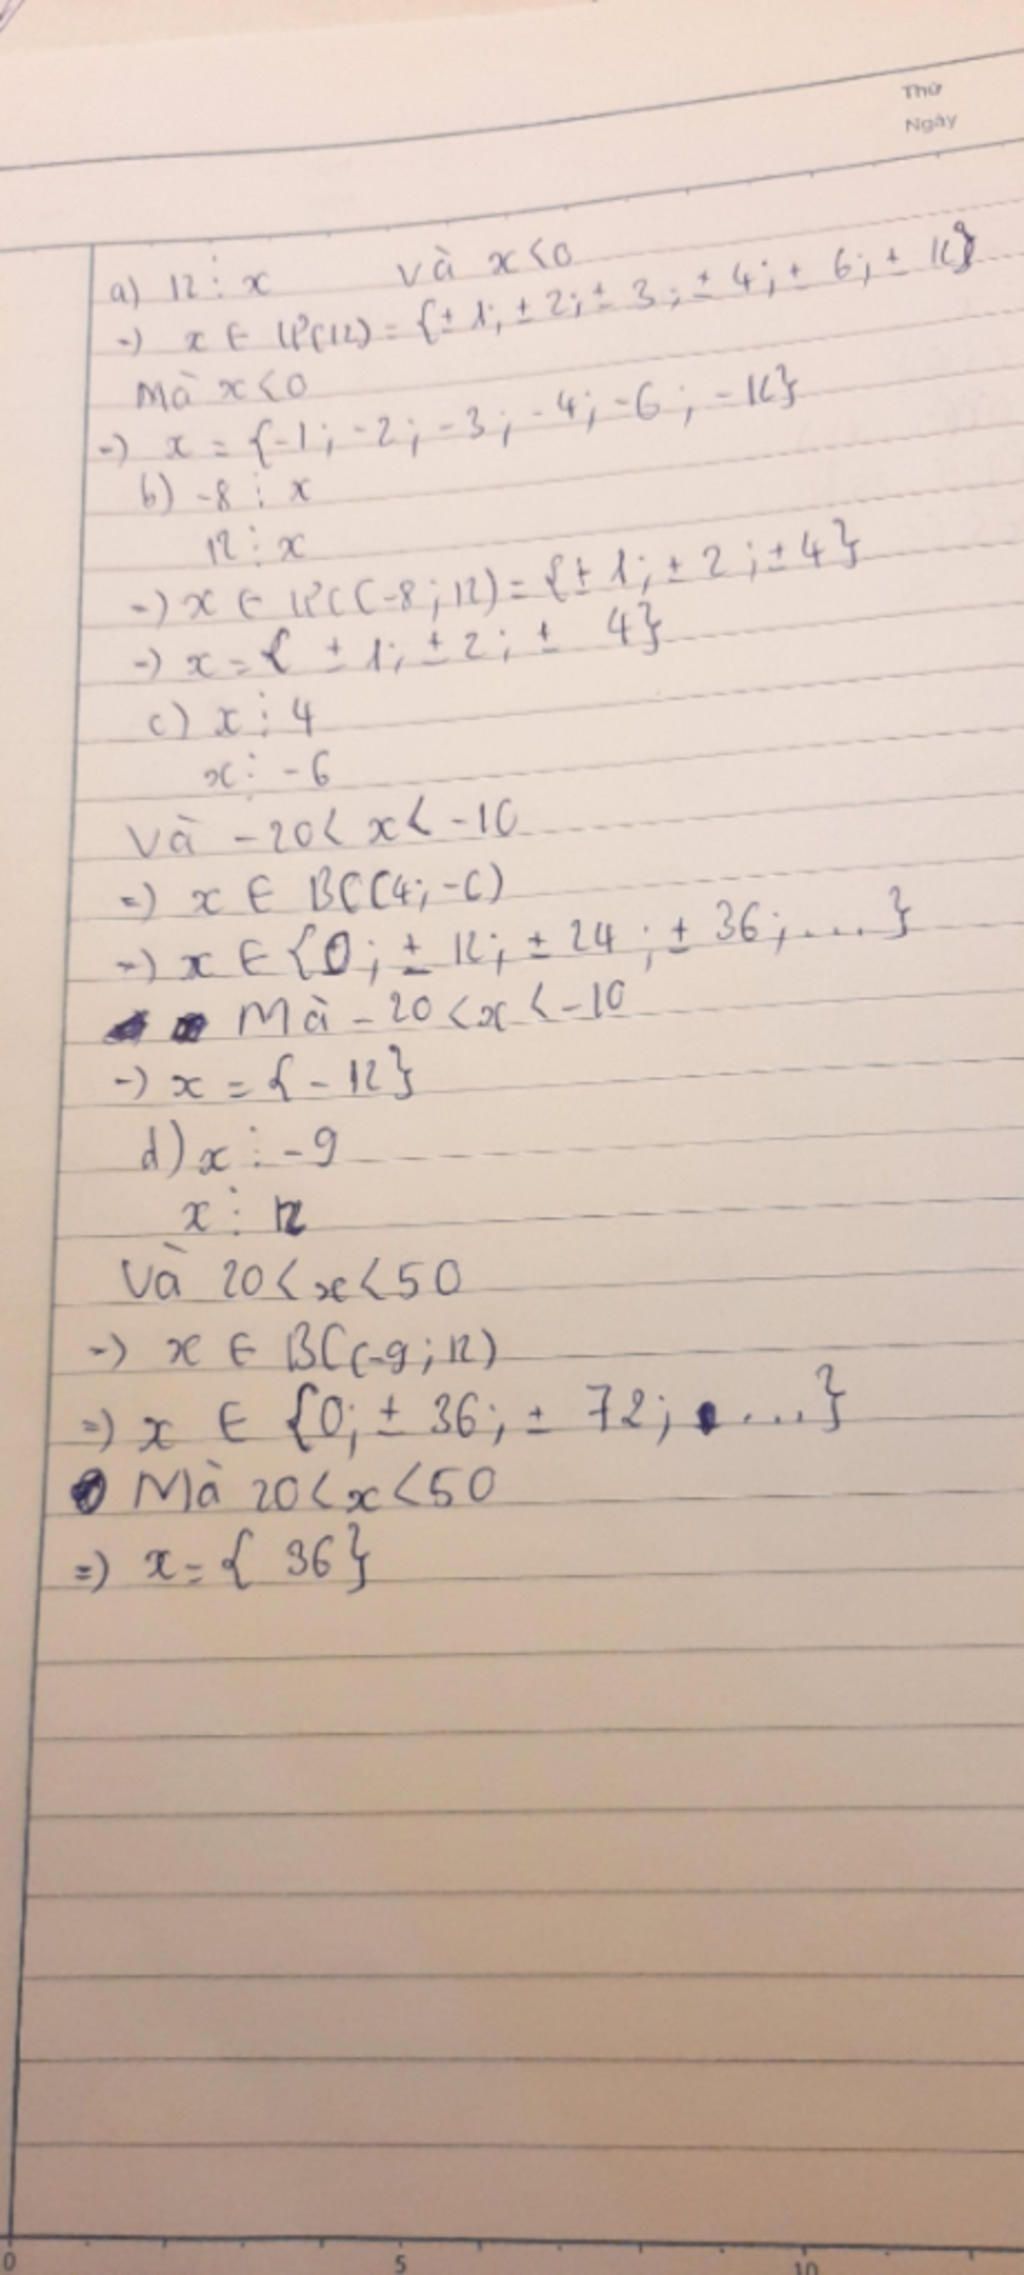 Thứ
Ngày
a) 12 ⋮ x và x < 0
=) x ∈ Ư(12) = {± 1; ± 2; ± 3; ± 4; ± 6; ± 12}
Mà x < 0
=) x = {-1; -2; -3; -4; -6; -12}
b) -8 ⋮ x
12 ⋮ x
=) x ∈ ƯC(-8; 12) = {± 1; ± 2; ± 4}
=) x = { ± 1; ± 2; ± 4}
c) x ⋮ 4
x ⋮ -6
Và -20 < x < -10
=) x ∈ BC(4; -6)
=) x ∈ {0; ± 12; ± 24; ± 36; ...}
Mà -20 < x < -10
=) x = {-12}
d) x ⋮ -9
x ⋮ 12
Và 20 < x < 50
=) x ∈ BC(-9; 12)
=) x ∈ {0; ± 36; ± 72; ...}
Mà 20 < x < 50
=) x = { 36}
0 5 10